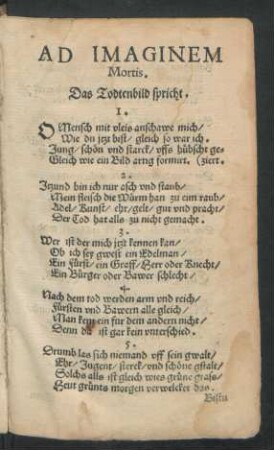 AD IMAGINEM
Mortis.
Das Todtenbild spricht.
1.
O Mensch mit vleis anschawe mich/
Wie du jtzt bist/ gleich so war ich.
Jung/ schön vnd starck/ vffs hübscht ge-
Gleich wie ein Bild artig formirt. (ziert.
2.
Itzund bin ich nur asch vnd staub/
Mein fleisch die Würm han zu eim raub/
Adel/ Kunst/ ehr/ gelt/ gut vnd pracht/
Der Tod hat alls zu nicht gemacht.
3.
Wer ist der mich jtzt kennen kan/
Ob ich sey gwest ein Edelman/
Ein Fürst/ ein Graff/ Herr oder Knecht/
Ein Bürger oder Bawer schlecht/
4.
Nach dem tod werden arm vnd reich/
Fürsten vnd Bawern alle gleich/
Man kent ein fur dem andern nicht/
Denn da ist gar kein vnterschied.
5.
Drumb las sich niemand vff sein gwalt/
Ehr/ Jugent/ sterck/ vnd schöne gstalt/
Solchs alls ist gleich wies grüne grass/
Heut grünts morgen verwelcket das.
Bistu